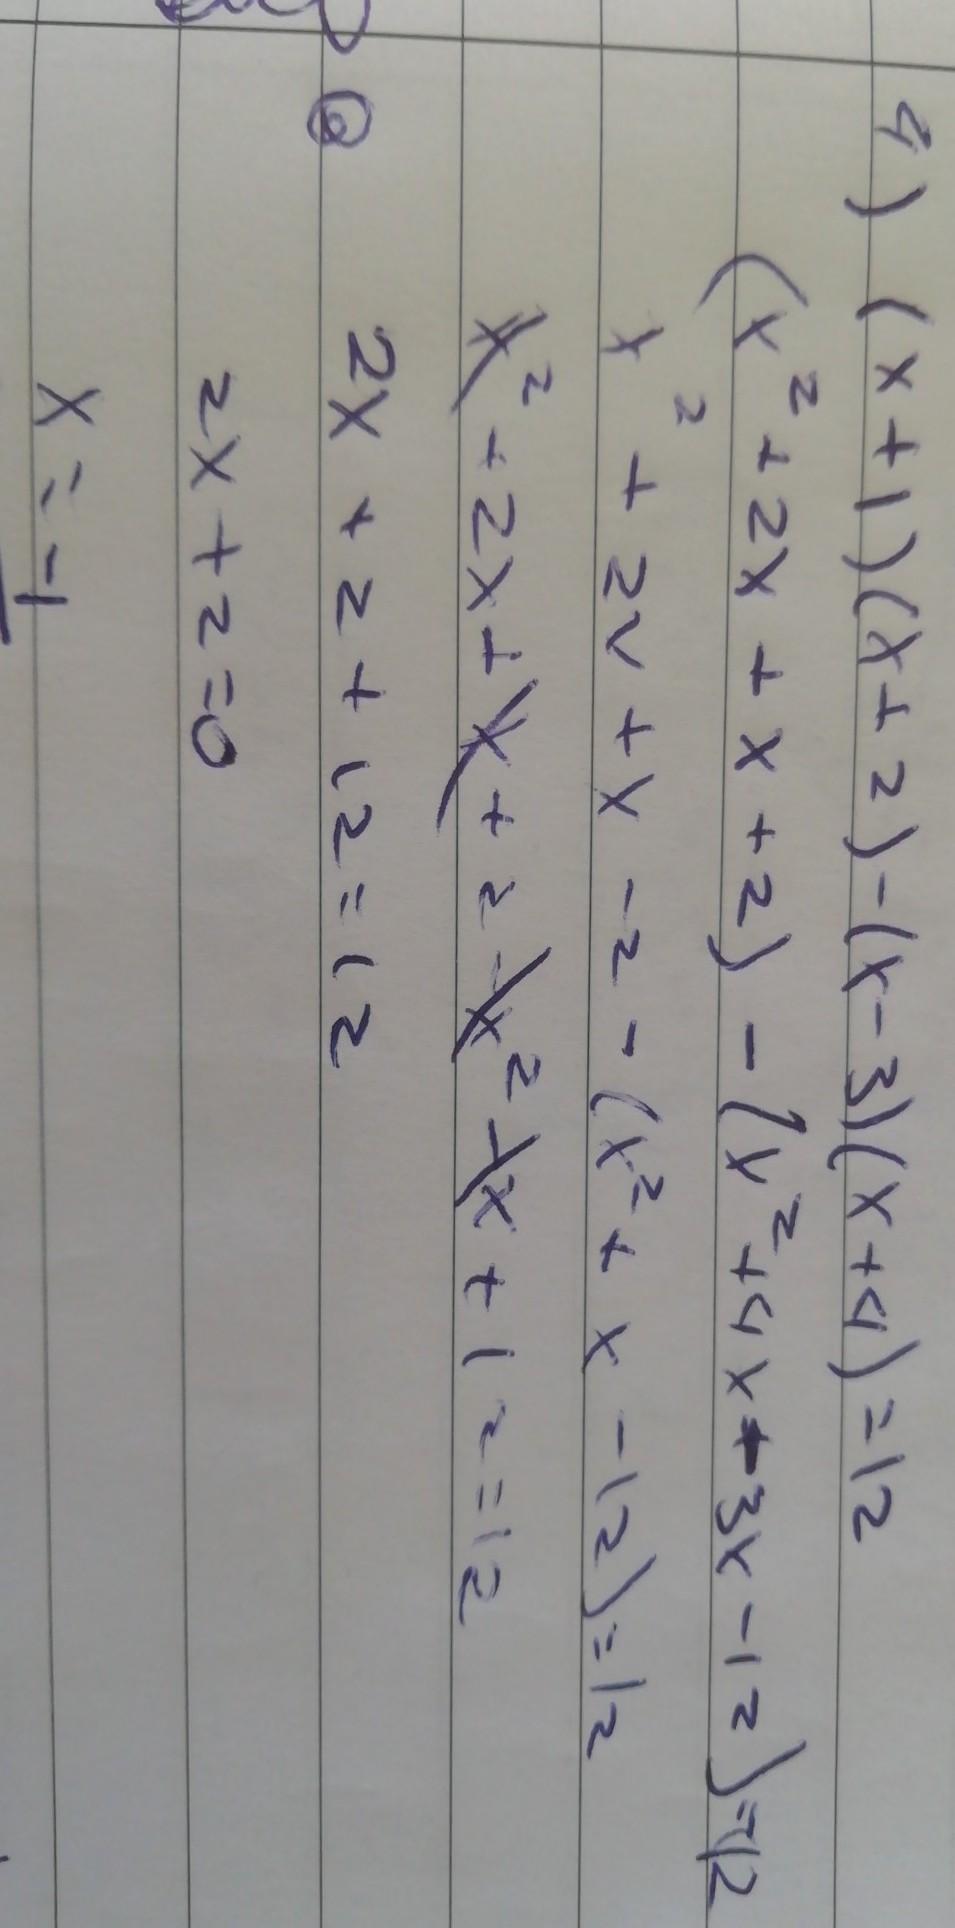 4) (x+1)(x+2)-(x-3)(x+4)=12
(x²+2x+x+2)-(x²+4x-3x-12)=12
x²+2x+x-2-(x²+x-12)=12
x²+2x+x+2-x²-x+12=12
2x+2+12=12
2x+2=0
x=-1